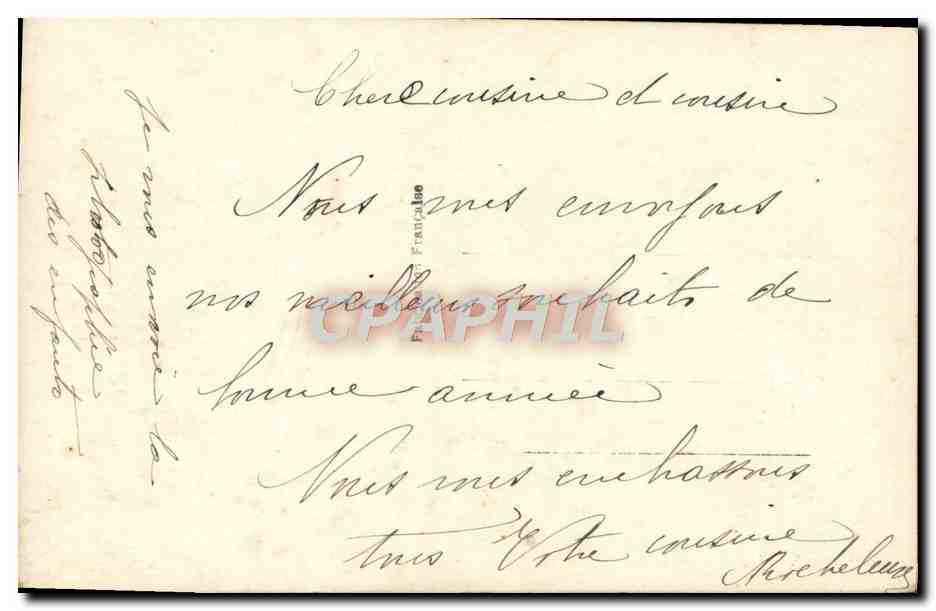 Cher cousine et cousine
Nous vous envoyons
nos meilleurs souhaits de
bonne année
Nous vous embrassons
tous Votre cousine
Je vous envoie la
photographie
des enfants
Française
CPAPHIL